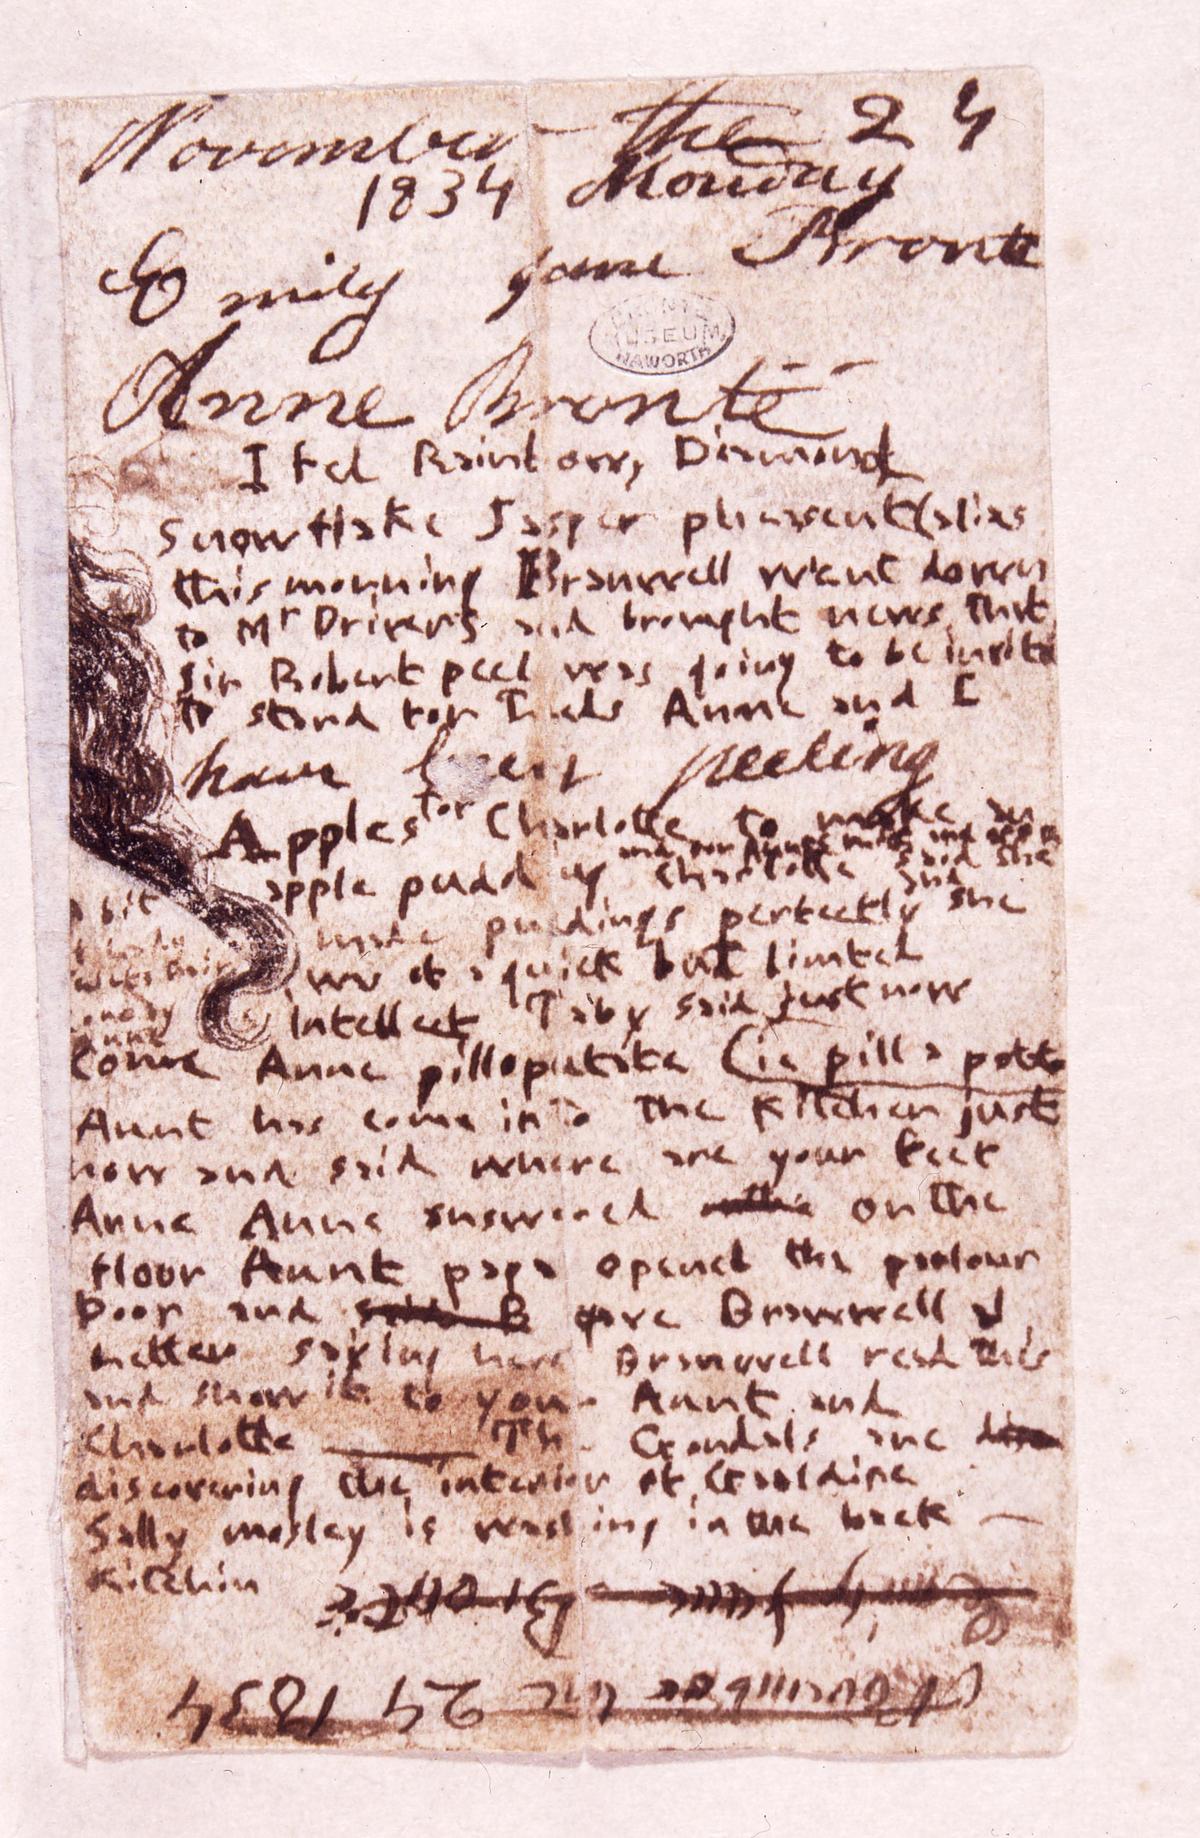 November the 24
1834 Monday
Emily Jane Brontë
BRONTE
MUSEUM
HAWORTH
Anne Brontë
I fed Rainbow, Diamond
Snowflake Jasper pheasent (alias
this morning Branwell went down
to Mr Drivers and brought news that
Sir Robert peel was going to be invited
to stand for Leeds Anne and I
have been peeling
Apples for Charlotte to make an
apple pudding and for Aunts nuts and apples Charlotte said she
made puddings perfectly and she
was of a quick but limted
Intellect Taby said just now
Come Anne pilloputate (ie pill a potato
Aunt has come into the Kitchen just
now and said where are your feet
Anne Anne answered on the
floor Aunt papa opened the parlour
Door and gave Branwell a
Letter saying here Branwell read this
and show it to your Aunt and
Charlotte — The Gondals are
discovering the interior of Gaaldine
Sally mosley is washing in the back —
Kitchin
Emily Jane Brontë
November the 24 1834
a bit